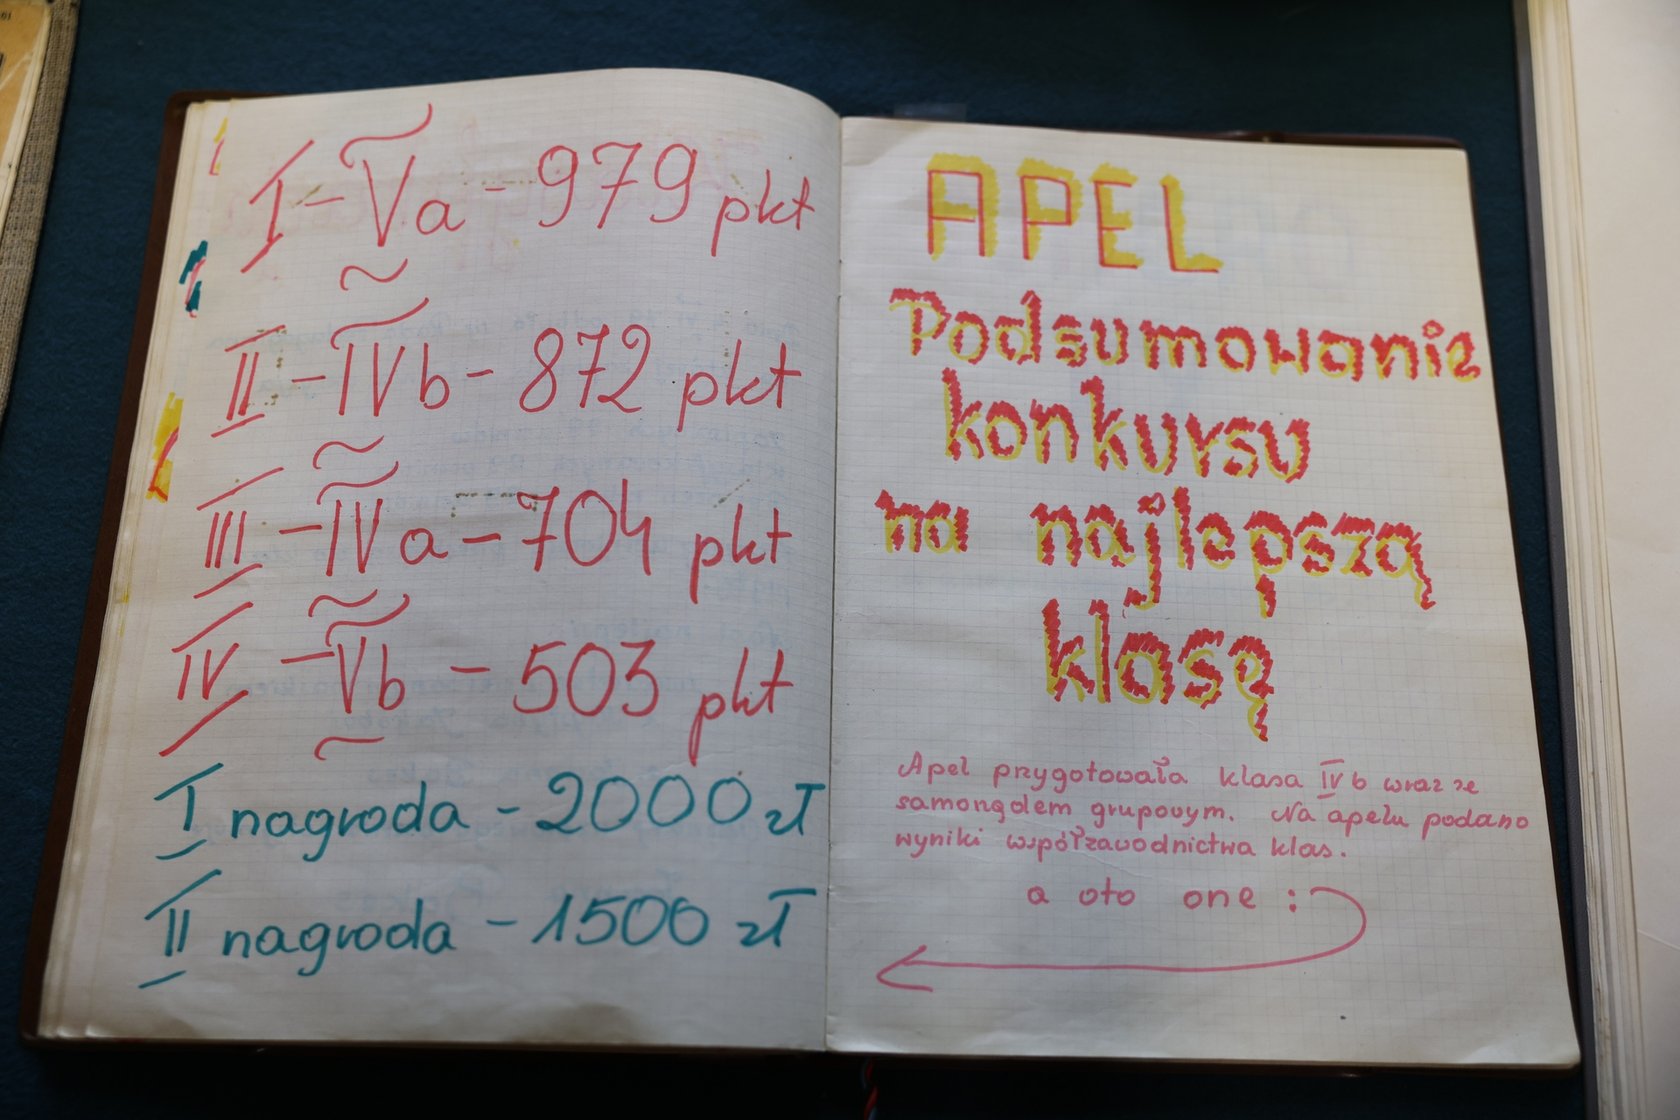 I - Va - 979 pkt
II - IVb - 872 pkt
III - IVa - 704 pkt
IV - Vb - 503 pkt
I nagroda - 2000 zł
II nagroda - 1500 zł
APEL
Podsumowanie
konkursu
na najlepszą
klasę
Apel przygotowała klasa IVb wraz ze
samorządem grupowym. Na apelu podano
wyniki współzawodnictwa klas.
a oto one :